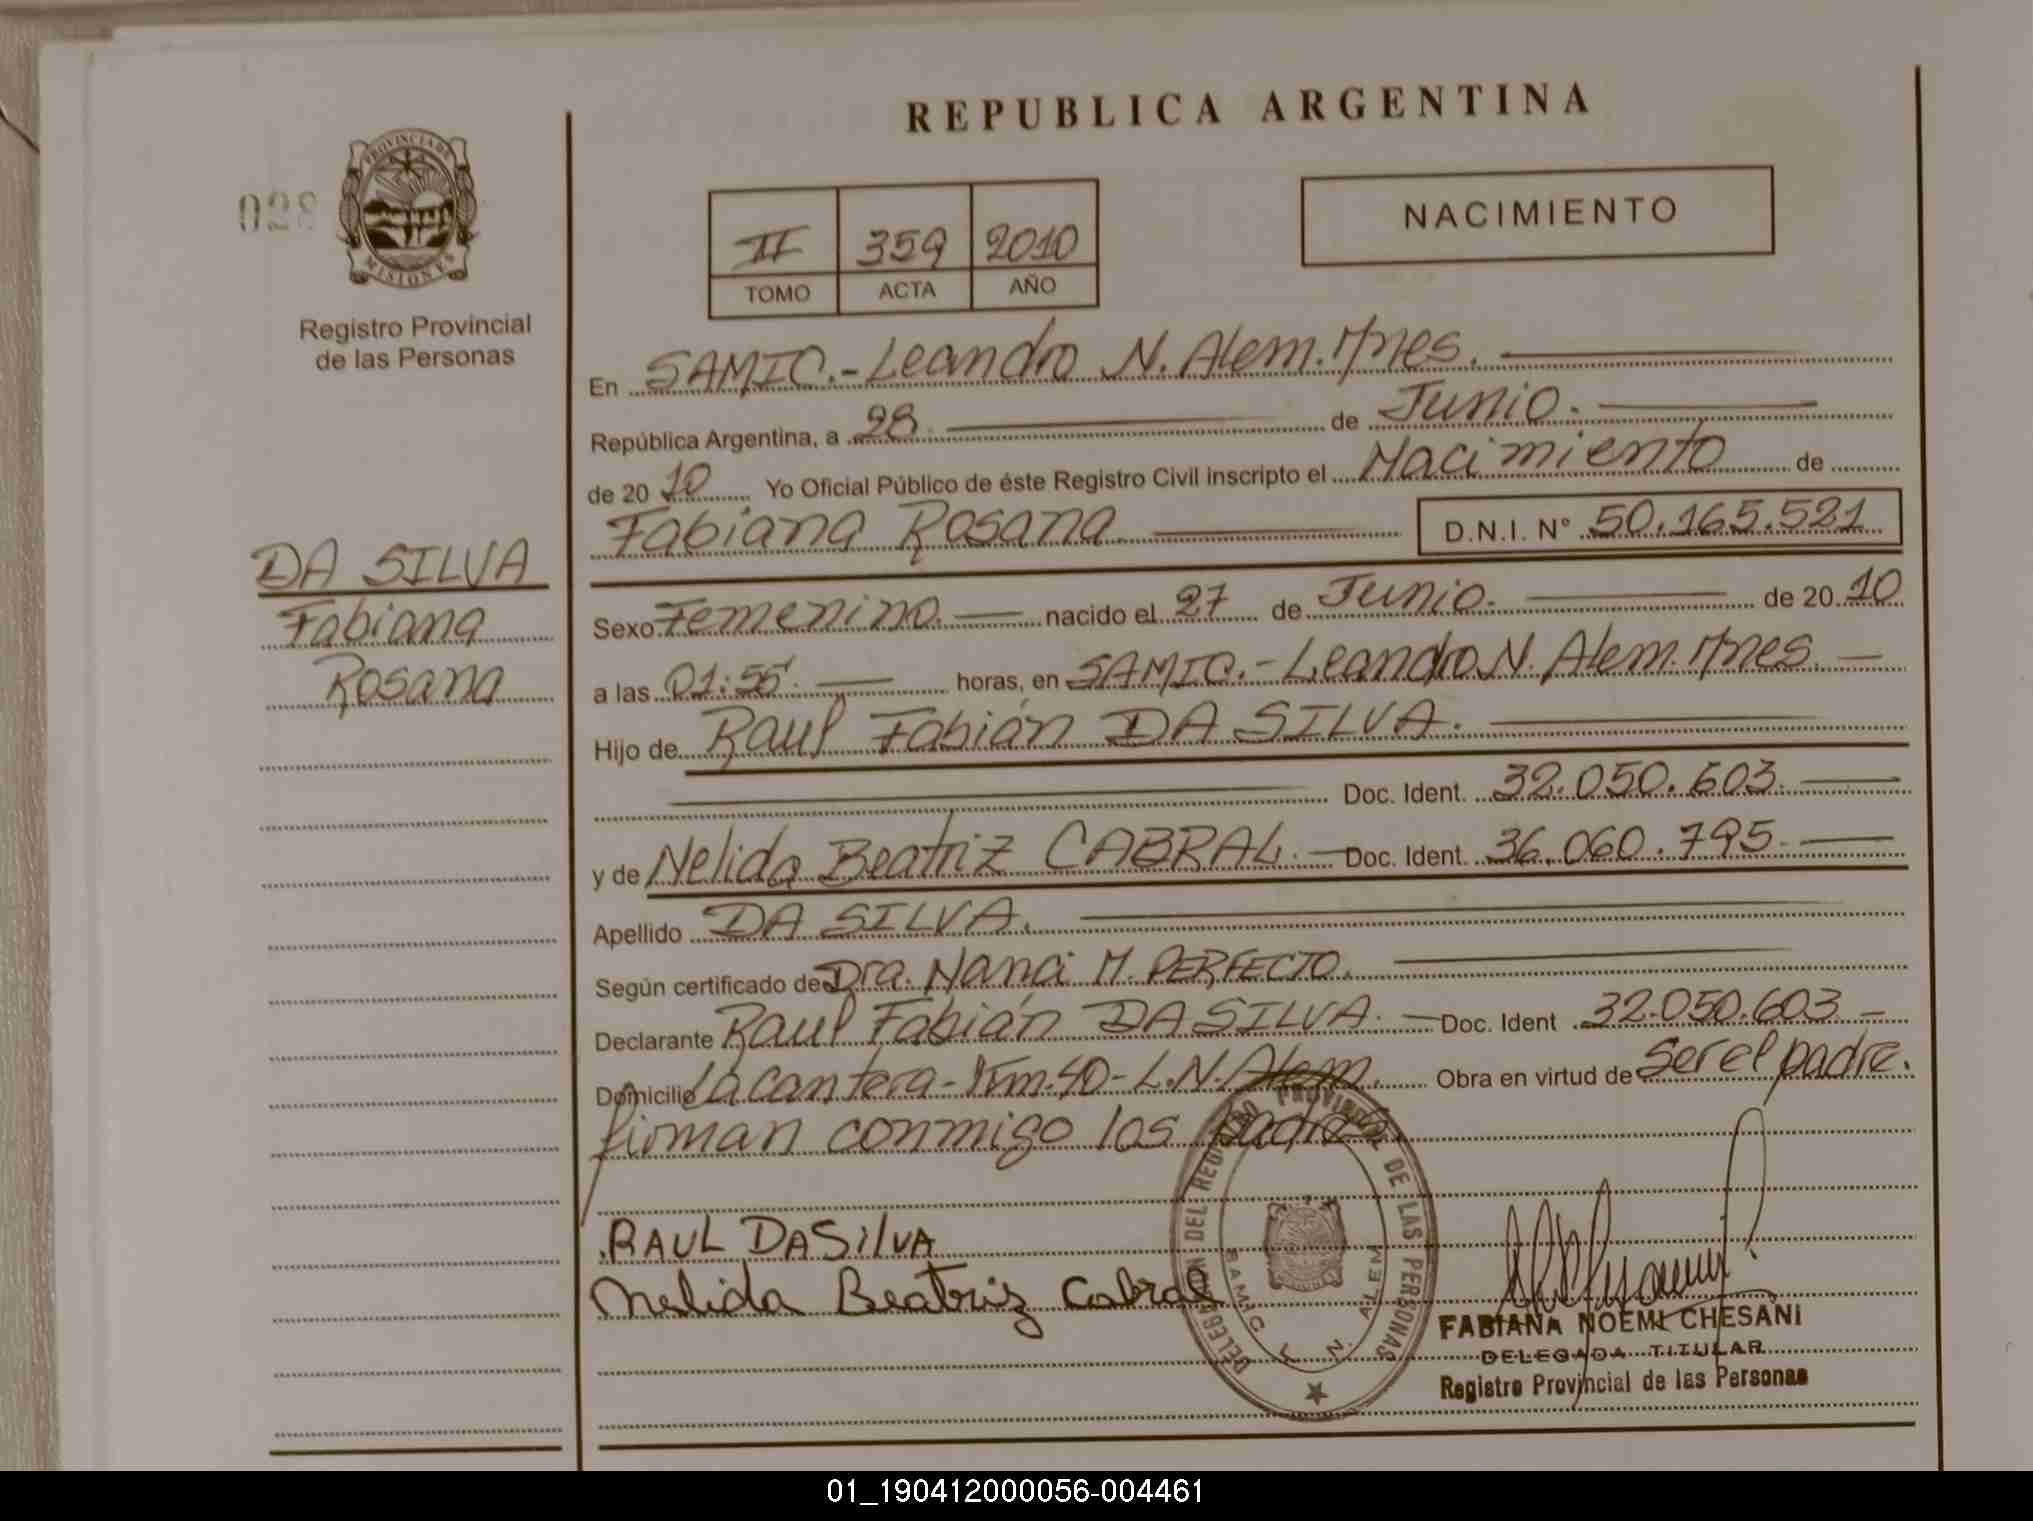 REPUBLICA ARGENTINA
PROVINCIA DE
MISIONES
Registro Provincial
de las Personas
NACIMIENTO
II 359 2010
TOMO ACTA AÑO
En SAMIC.-Leandro N. Alem. Mnes.
República Argentina, a 28 de Junio.
de 20 10 Yo Oficial Público de éste Registro Civil inscripto el Nacimiento de
Fabiana Rosana D.N.I. N° 50.165.521
DA SILVA
Fabiana
Rosana
Sexo Femenino. nacido el 27 de Junio. de 20 10
a las 01:55. horas, en SAMIC.-Leandro N. Alem. Mnes.
Hijo de Raul Fabián DA SILVA.
Doc. Ident. 32.050.603.
y de Nelida Beatriz CABRAL. Doc. Ident. 36.060.795.
Apellido DA SILVA.
Según certificado de Dra. Nanci M. PERFECTO.
Declarante Raul Fabián DA SILVA. Doc. Ident 32.050.603
Domicilio La cantera-Km.40-L.N.Alem. Obra en virtud de ser el padre.
firman conmigo los padres
RAUL DASilVA
Nelida Beatriz Cabral
DELEGACION DEL REGISTRO PROVINCIAL DE LAS PERSONAS
SAMIC L. N. ALEM
FABIANA NOEMI CHESANI
DELEGADA TITULAR
Registro Provincial de las Personas
01_190412000056-004461